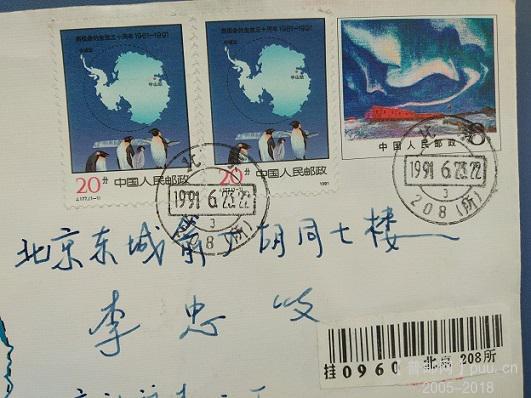 南极条约生效三十周年1961-1991
长城站
中山站
20分 中国人民邮政
J.177.(1-1) 1991
南极条约生效三十周年1961-1991
长城站
中山站
20分 中国人民邮政
J.177.(1-1) 1991
中国人民邮政 8分
北京
1991.6.23.22
3
208(所)
北京
1991.6.23.22
3
208(所)
北京东城 胡同七楼
李忠
挂 0960 北京 208所
puu.cn
2005-2018